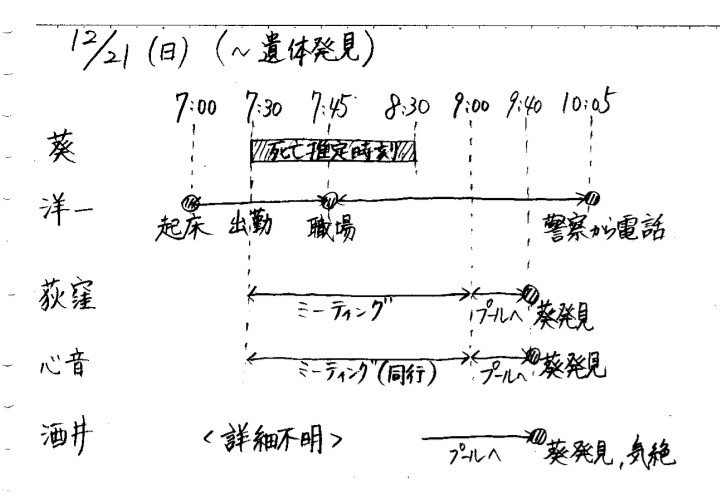 12/21(日)(~遺体発見)
7:00 7:30 7:45 8:30 9:00 9:40 10:05
葵 死亡推定時刻
洋一
起床 出勤 職場 警察から電話
荻窪 ミーティング プールへ 葵発見
心音 ミーティング(同行) プールへ 葵発見
酒井 <詳細不明> プールへ 葵発見,気絶